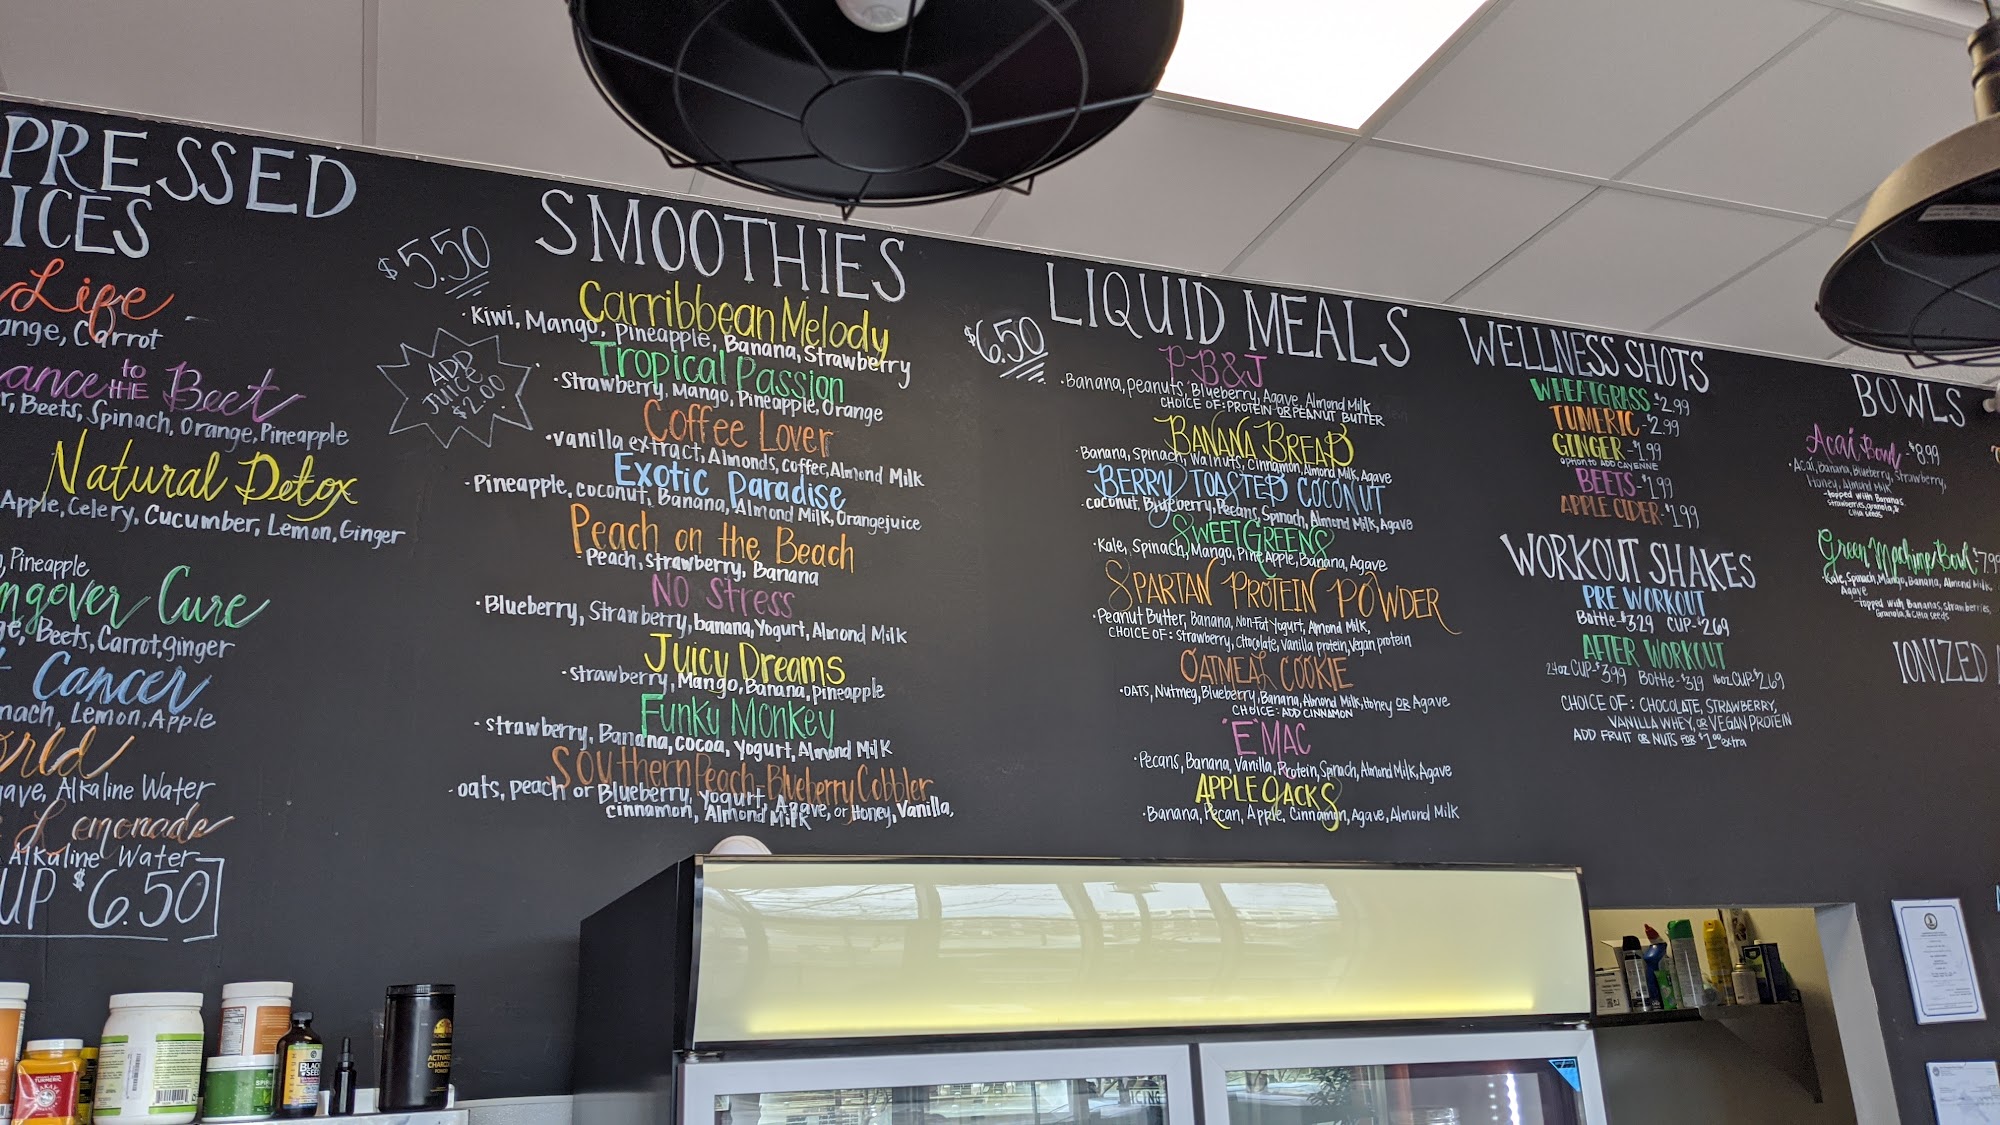 PRESSED
ICES
Life
ange, Carrot
ance to THE Beet
r, Beets, Spinach, Orange, Pineapple
Natural Detox
Apple, Celery, Cucumber, Lemon, Ginger
, Pineapple
ngover Cure
ge, Beets, Carrot, ginger
Cancer
nach, Lemon, Apple
orld
gave, Alkaline Water
Lemonade
Alkaline Water
UP $6.50
$5.50
SMOOTHIES
ADD JUICE $2.00
Carribbean Melody
·Kiwi, Mango, Pineapple, Banana, Strawberry
Tropical Passion
·Strawberry, Mango, Pineapple, Orange
Coffee Lover
·vanilla extract, Almonds, coffee, Almond Milk
Exotic Paradise
·Pineapple, coconut, Banana, Almond Milk, Orangejuice
Peach on the Beach
·Peach, strawberry, Banana
NO Stress
·Blueberry, Strawberry, banana, Yogurt, Almond Milk
Juicy Dreams
·strawberry, Mango, Banana, pineapple
Funky Monkey
·strawberry, Banana, cocoa, Yogurt, Almond Milk
Southern Peach Blueberry Cobbler
·oats, peach or Blueberry, Yogurt, Agave, or Honey, Vanilla,
cinnamon, Almond Milk
$6.50
LIQUID MEALS
PB&J
·Banana, peanuts, Blueberry, Agave, Almond Milk
CHOICE OF: PROTEIN OR PEANUT BUTTER
BANANA BREAD
·Banana, Spinach, Walnuts, Cinnamon, Almond Milk, Agave
BERRY TOASTED COCONUT
·coconut, Blueberry, Pecans, Spinach, Almond Milk, Agave
SWEET GREENS
·Kale, Spinach, Mango, PineApple, Banana, Agave
SPARTAN PROTEIN POWDER
·Peanut Butter, Banana, Non-Fat Yogurt, Almond Milk,
CHOICE OF: Strawberry, Chocolate, Vanilla protein, Vegan protein
OATMEAL COOKIE
·OATS, Nutmeg, Blueberry, Banana, Almond Milk, Honey OR Agave
CHOICE: ADD CINNAMON
"E"MAC
·Pecans, Banana, Vanilla, Protein, Spinach, Almond Milk, Agave
APPLE JACKS
·Banana, Pecan, Apple, Cinnamon, Agave, Almond Milk
WELLNESS SHOTS
WHEATGRASS-$2.99
TUMERIC-$2.99
GINGER-$1.99
OPTION TO ADD CAYENNE
BEETS-$1.99
APPLE CIDER-$1.99
WORKOUT SHAKES
PRE WORKOUT
Bottle-$3.29 CUP-$2.69
AFTER WORKOUT
24oz CUP-$3.99 Bottle-$3.19 16oz CUP-$2.69
CHOICE OF: CHOCOLATE, STRAWBERRY,
VANILLA WHEY, OR VEGAN PROTEIN
ADD FRUIT OR NUTS FOR $1.00 extra
BOWLS
Acai Bowl $8.99
·Acai, Banana, Blueberry, Strawberry,
Honey, Almond Milk
-topped with Bananas,
strawberries, granola, &
Chia seeds
Green Machine Bowl $7.99
·Kale, Spinach, Mango, Banana, Almond Milk
Agave
-topped with, Bananas, strawberries,
Granola, & Chia seeds
IONIZED
TURMERIC
BLACK SEED
ACTIVATED CHARCOAL